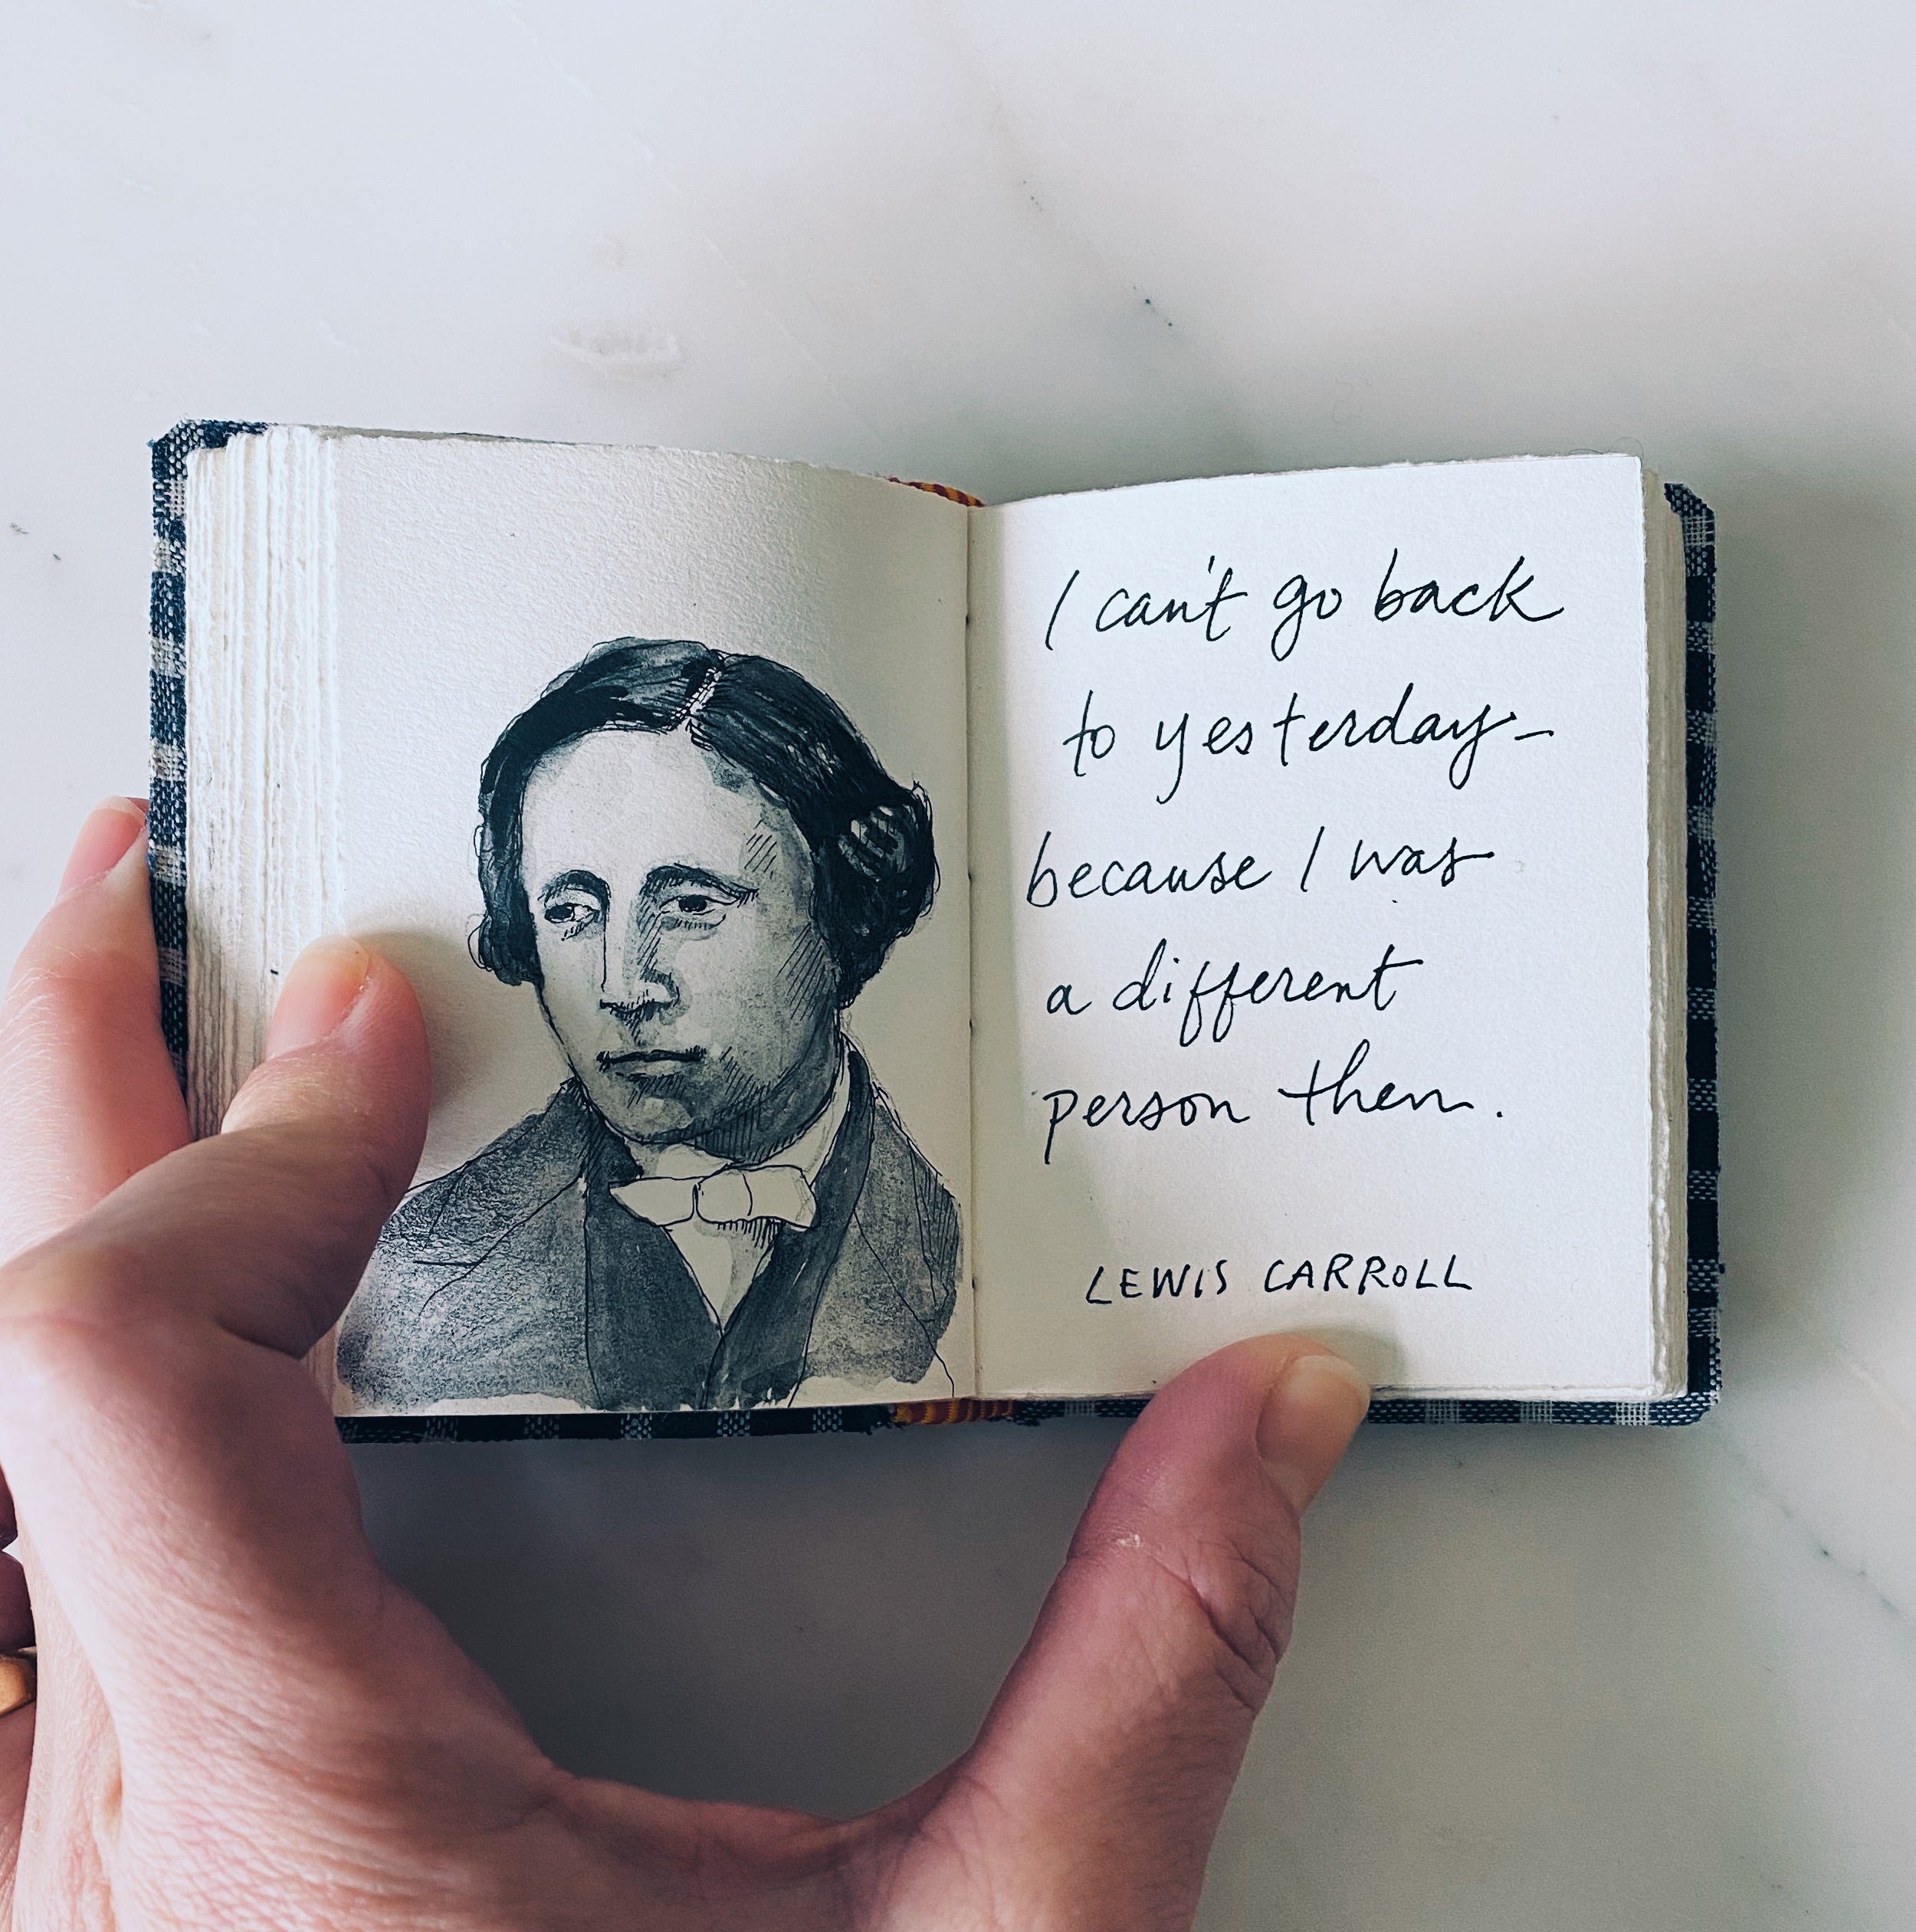 I can't go back
to yesterday-
because I was
a different
person then.
LEWIS CARROLL